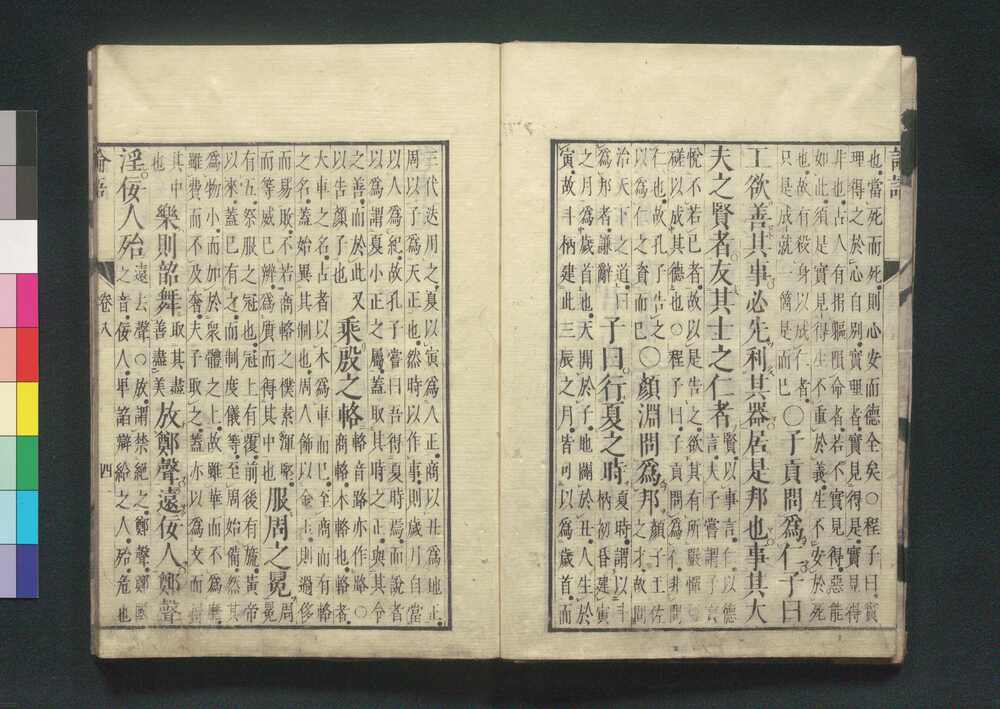 論語
也當死而死則心安而德全矣○程子曰實
理得之於心自別實理者實見得是實見得
非也古人有捐軀隕命者若不實見得惡能
如此須是實見得生不重於義生不安於死
也故有殺身以成仁者
只是成就一箇是而已
○子貢問爲仁子曰
工欲善其事必先利其器居是邦也事其大
夫之賢者友其士之仁者
賢以事言仁以德
言夫子嘗謂子貢
悅不若己者故以是告之欲其有所嚴憚切
磋以成其德也○程子曰子貢問爲仁非問
仁也故孔子告之
以爲仁之資而已
○顏淵問爲邦
顏子王佐
之才故問
治天下之道曰
爲邦者謙辭
子曰行夏之時
夏時謂以斗
柄初昏建寅
之月爲歲首也天開於子地闢於丑人生於
寅故斗柄建此三辰之月皆可以爲歲首而
三代迭用之夏以寅爲人正商以丑爲地正
周以子爲天正也然時以作事則歲月自當
以人爲紀故孔子嘗曰吾得夏時焉而說者
以爲謂夏小正之屬蓋取其時之正與其令
之善而於此又
以告顏子也
乘殷之輅
輅音路亦作路○
商輅木輅也輅者
大車之名古者以木爲車而已至商而有輅
之名蓋始異其制也周人飾以金玉則過侈
而易敗不若商輅之樸素渾堅
而等威已辨爲質而得其中也
服周之冕
周
冕
有五祭服之冠也冠上有覆前後有旒黃帝
以來蓋已有之而制度儀等至周始備然其
爲物小而加於衆體之上故雖華而不爲靡
雖費而不及奢夫子取之蓋亦以爲文而得
其中
也
樂則韶舞
取其盡
善盡美
放鄭聲遠佞人鄭聲
淫佞人殆
遠去聲○放謂禁絕之鄭聲鄭國
之音佞人卑諂辯給之人殆危也
論語
卷八
四